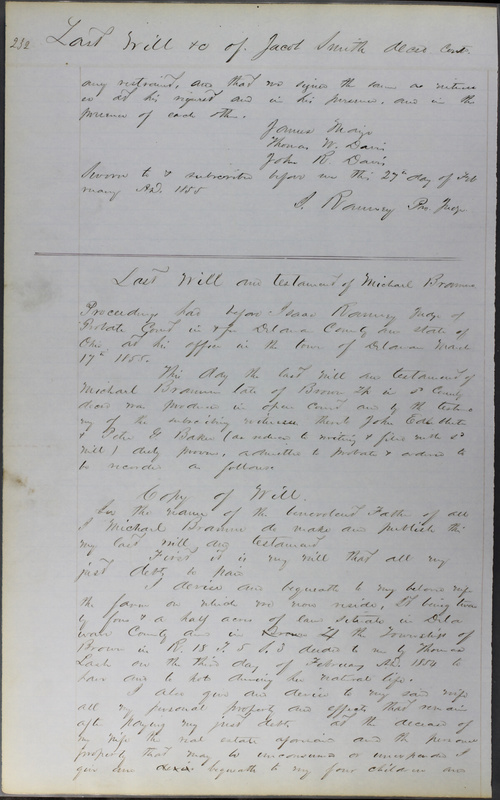 232 Last Will &c of Jacob Smith decd. Cont.
any restraint, and that we signed the same as witness
es at his request and in his presence, and in the
presence of each other.
James
Thomas W. Davis
John R Davis
Sworn to & subscribed before me this 27th day of Feb
ruary AD. 1855
I. Ramsey Pro. Judge
Last Will and testament of Michael
Proceedings had before Isaac Ramsey Judge of
Probate Court in & for Delaware County and state of
Ohio at his office in the town of Delaware March
17th 1855.
This day the last will and testament of
Michael late of Brown Tp in sd County
decd was produced in open Court and by the testimo
ny of the subscribing witnesses thereto John
& Peter G Baker (as reduced to writing & filed with sd
will) duly proven, admitted to probate & ordered to
be recorded as follows
Copy of Will.
In the name of the benevolent Father of all
I Michael do make and publish this
my last will and testament
First it is my will that all my
just debts be paid
I devise and bequeath to my beloved wife
the farm on which we now reside, It being
ty four & a half acres of land situate in Dela
ware County and in the Township of
Brown in R. 18 T. 5 S. 3 deeded to me by Thomas
on the third day of February AD. 1854 to
have and to hold during her natural life.
I also give and devise to my said wife
all my personal property and effects that remain
after paying my just debts at the decease of
my wife the real estate aforesaid and the personal
property that may be unconsumed or unexpended I
give and bequeath to my four children and